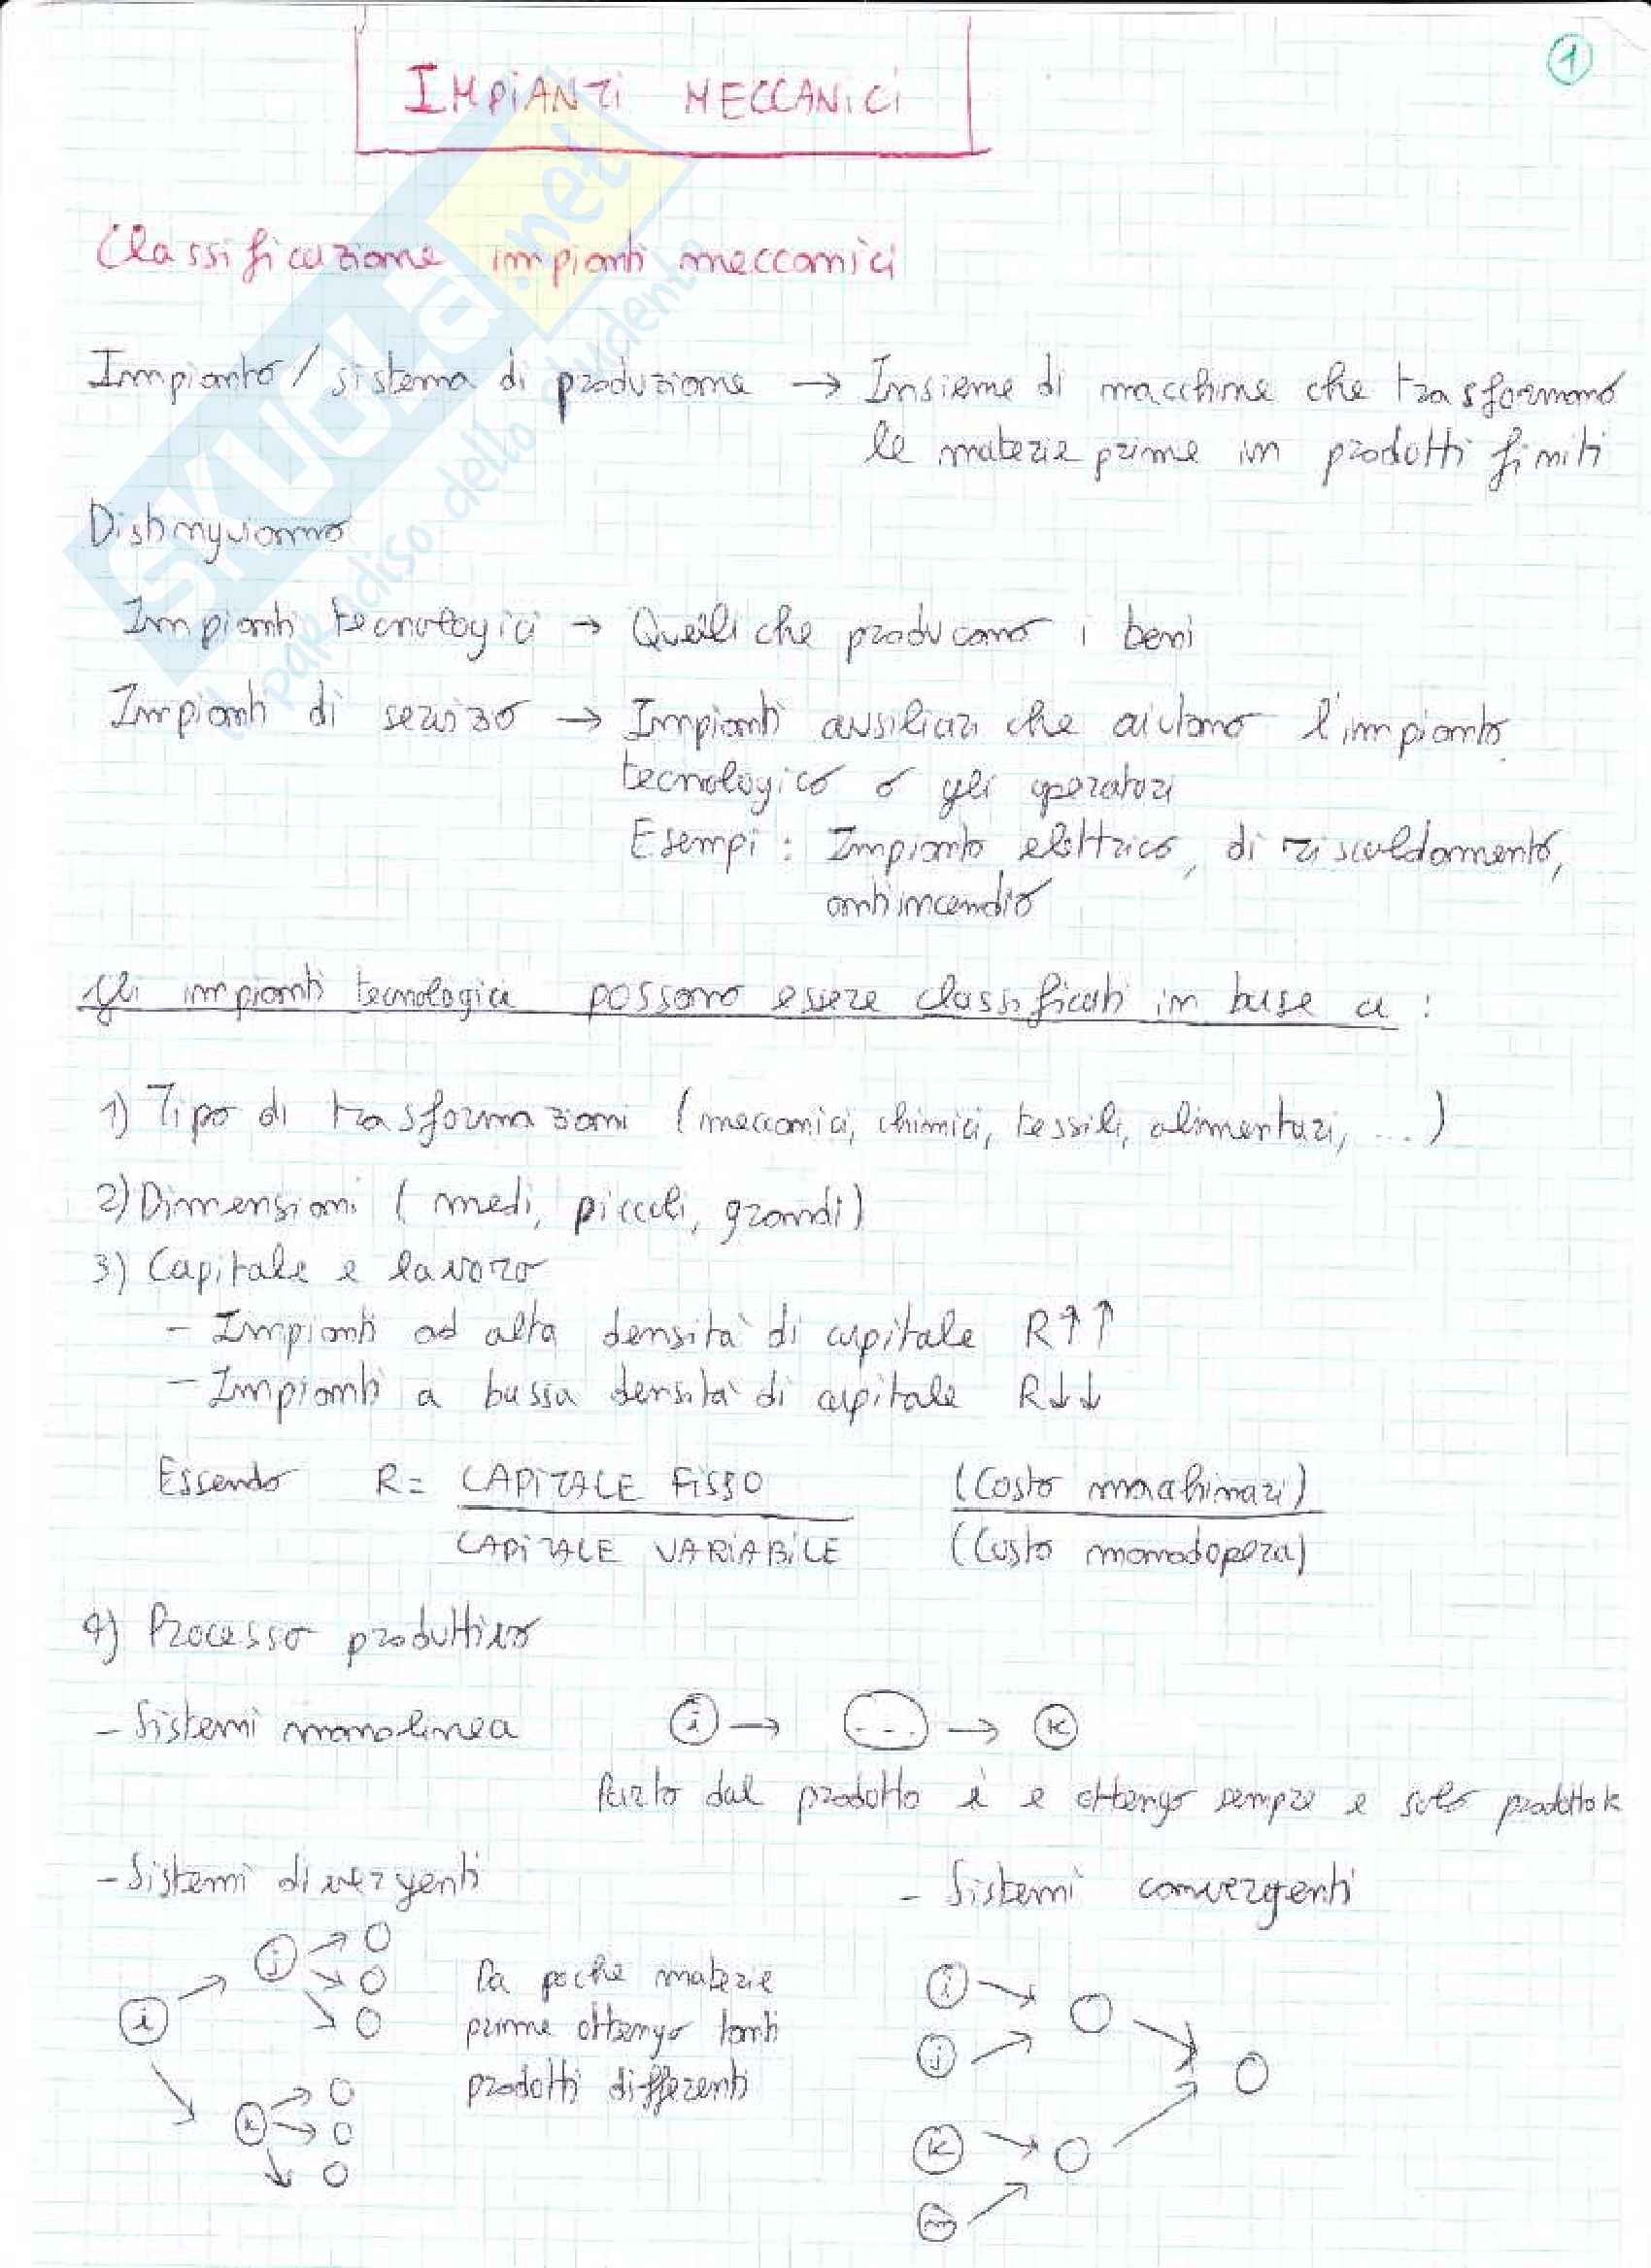 1
IMPIANTI MECCANICI
Classificazione impianti meccanici
Impianto / sistema di produzione → Insieme di macchine che trasformano
le materie prime in prodotti finiti
Distinguiamo
Impianti tecnologici → Quelli che producono i beni
Impianti di servizo → Impianti ausiliari che aiutano l'impianto
tecnologico o gli operatori
Esempi : Impianto elettrico, di riscaldamento,
antincendio
Gli impianti tecnologici possono essere classificati in base a :
1) Tipo di trasformazioni (meccanici, chimici, tessili, alimentari, ... )
2) Dimensioni ( medi, piccoli, grandi)
3) Capitale e lavoro
- Impianti ad alta densità di capitale R↑↑
- Impianti a bassa densità di capitale R↓↓
Essendo R = CAPITALE FISSO (Costo macchinari)
CAPITALE VARIABILE (Costo manodopera)
4) Processo produttivo
- Sistemi monolinea i → ... → k
Parto dal prodotto i e ottengo sempre e solo prodotto k
- Sistemi divergenti
i j k
Da poche materie
prime ottengo tanti
prodotti differenti
- Sistemi convergenti
i
j
k
m
SKUOLA.net
il paradiso dello studente